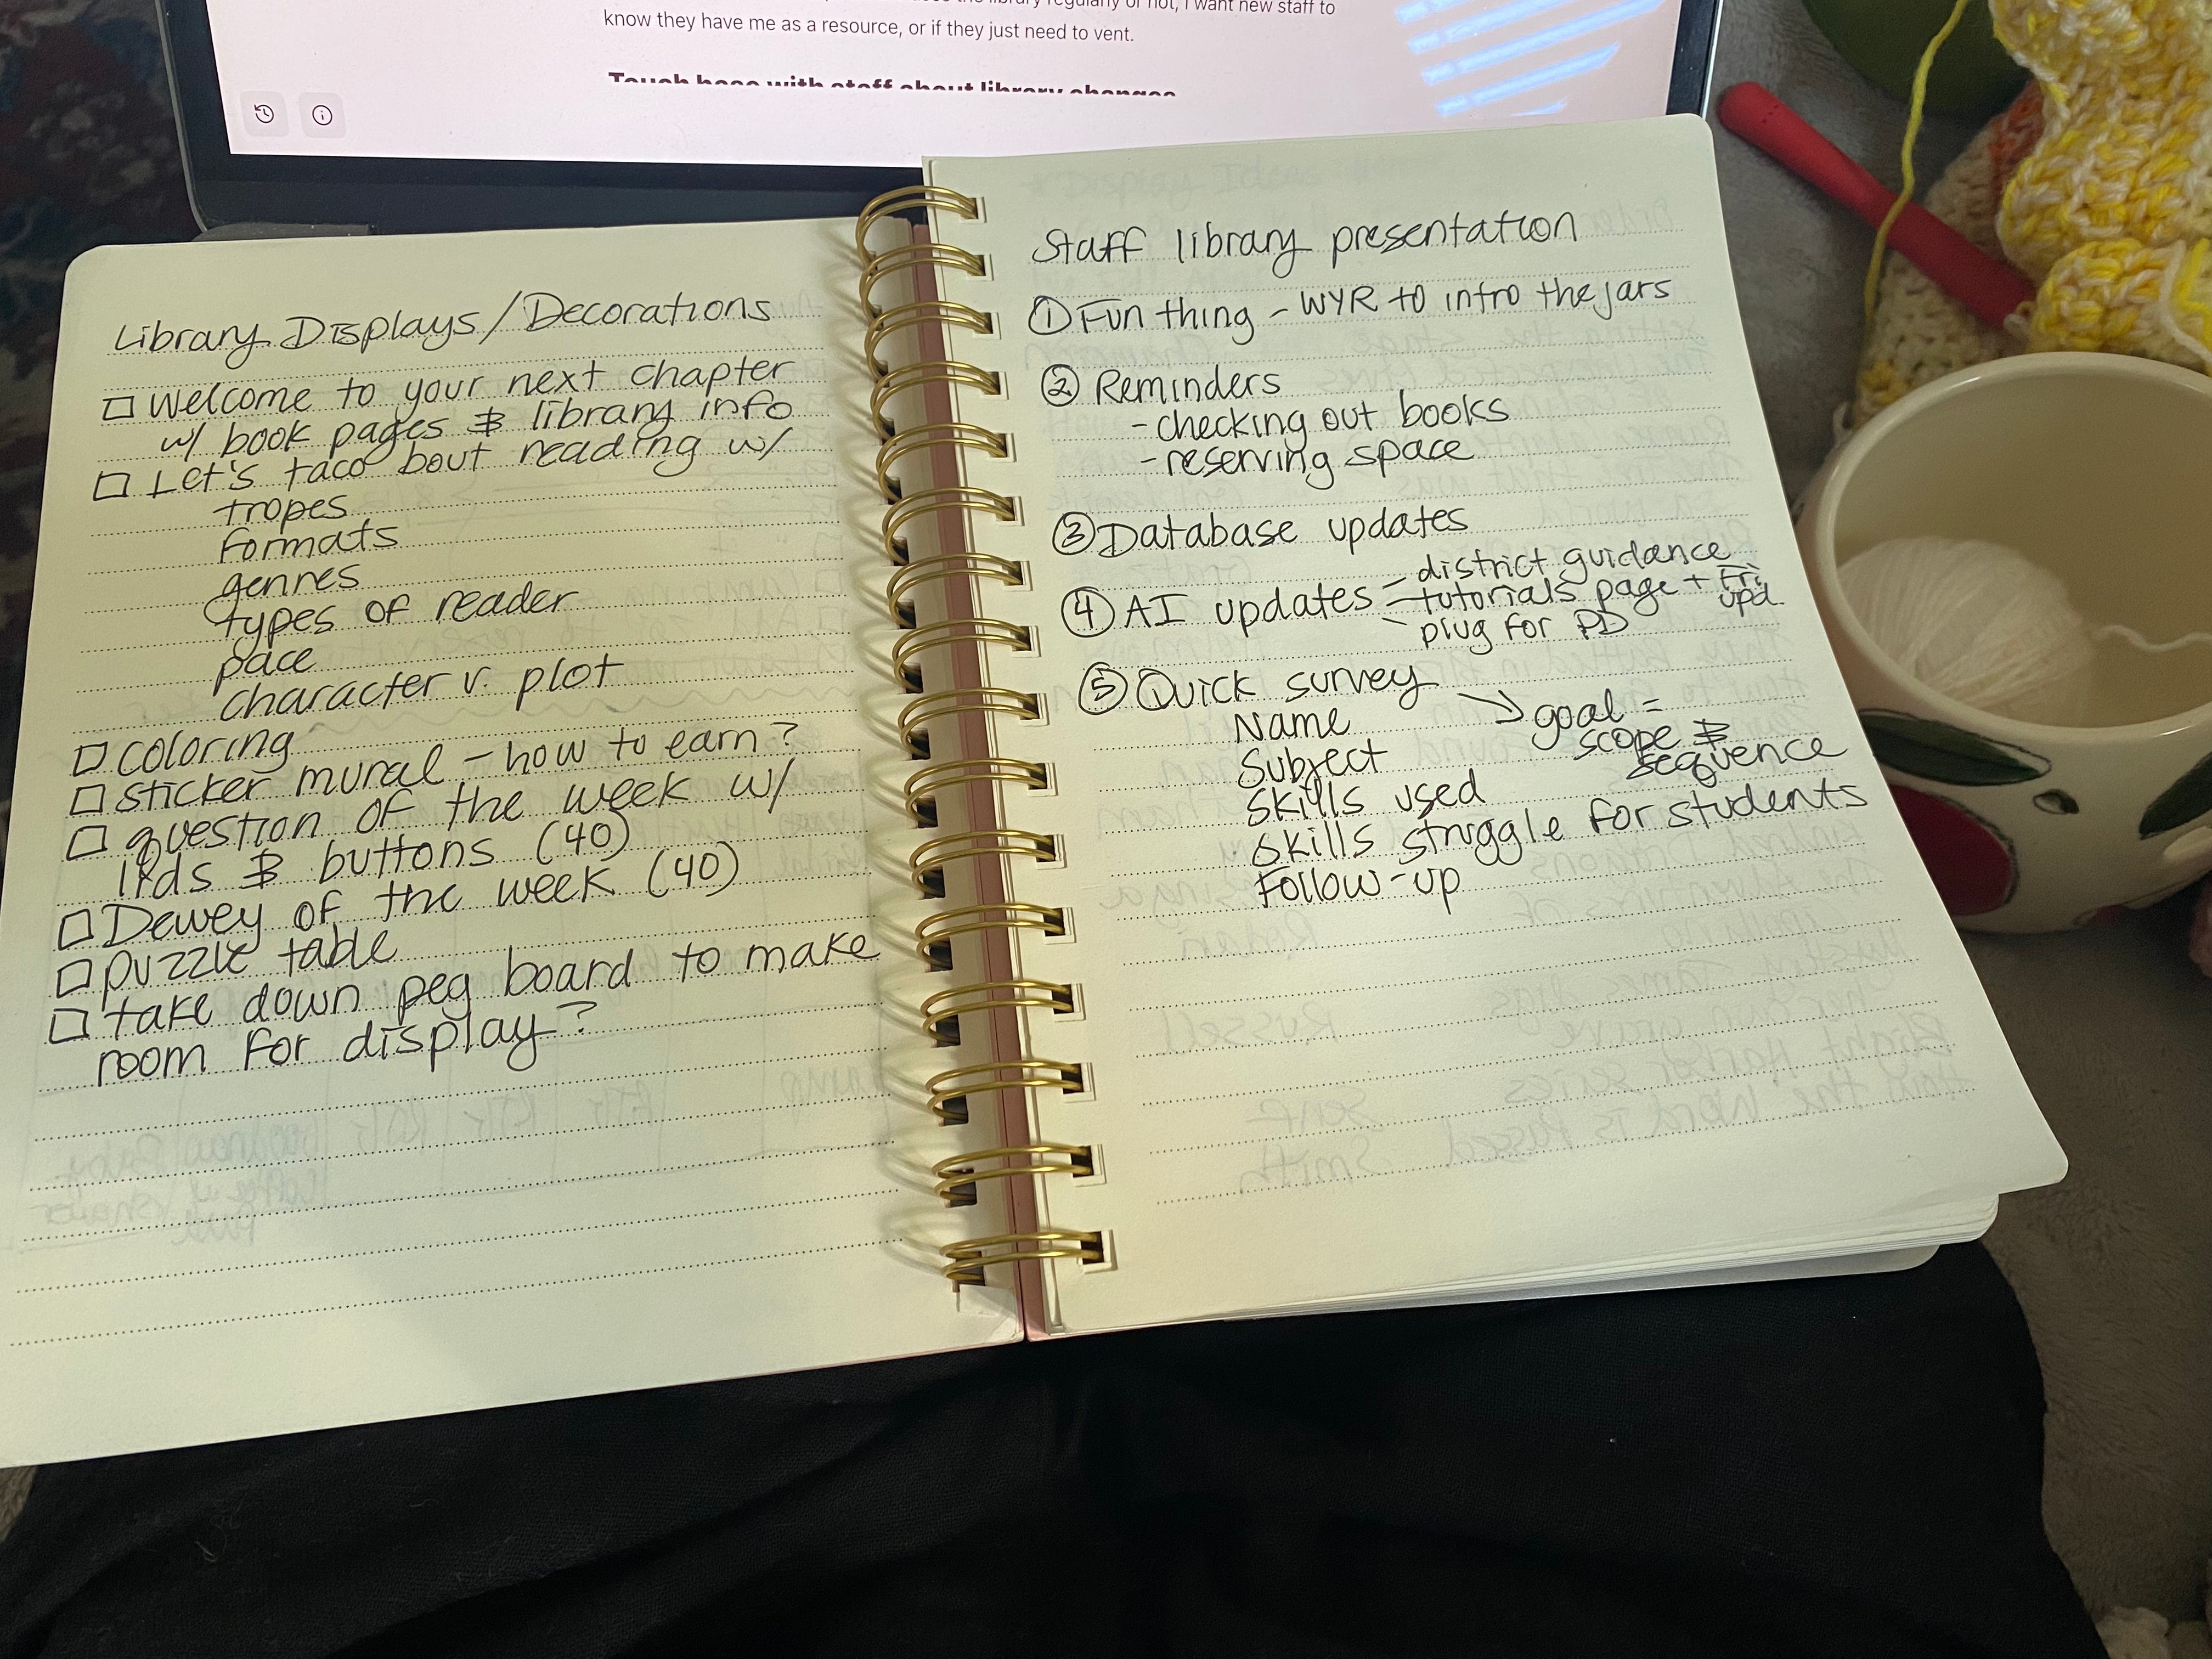 the library regularly or not, I want new staff to
know they have me as a resource, or if they just need to vent.
Touch base with staff about library changes
Library Displays/Decorations
□ Welcome to your next chapter
w/ book pages & library info
□ Let's taco bout reading w/
tropes
formats
genres
types of reader
pace
character v. plot
□ coloring
□ sticker mural - how to earn?
□ question of the week w/
lids & buttons (40)
□ Dewey of the week (40)
□ puzzle table
□ take down peg board to make
room for display?
Staff library presentation
① Fun thing - WYR to intro the jars
② Reminders
- checking out books
- reserving space
③ Database updates
④ AI updates - district guidance
- tutorials page + Fri upd.
- plug for PD
⑤ Quick survey → goal =
scope &
sequence
Name
Subject
Skills used
Skills struggle for students
Follow-up